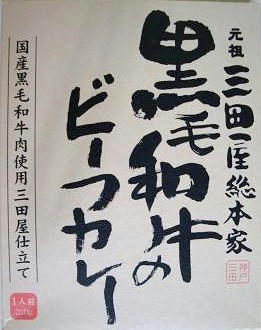 元祖
三田屋総本家
黒毛和牛の
ビーフカレー
国産黒毛和牛肉使用三田屋仕立て
神戸
三田
1人前
210g